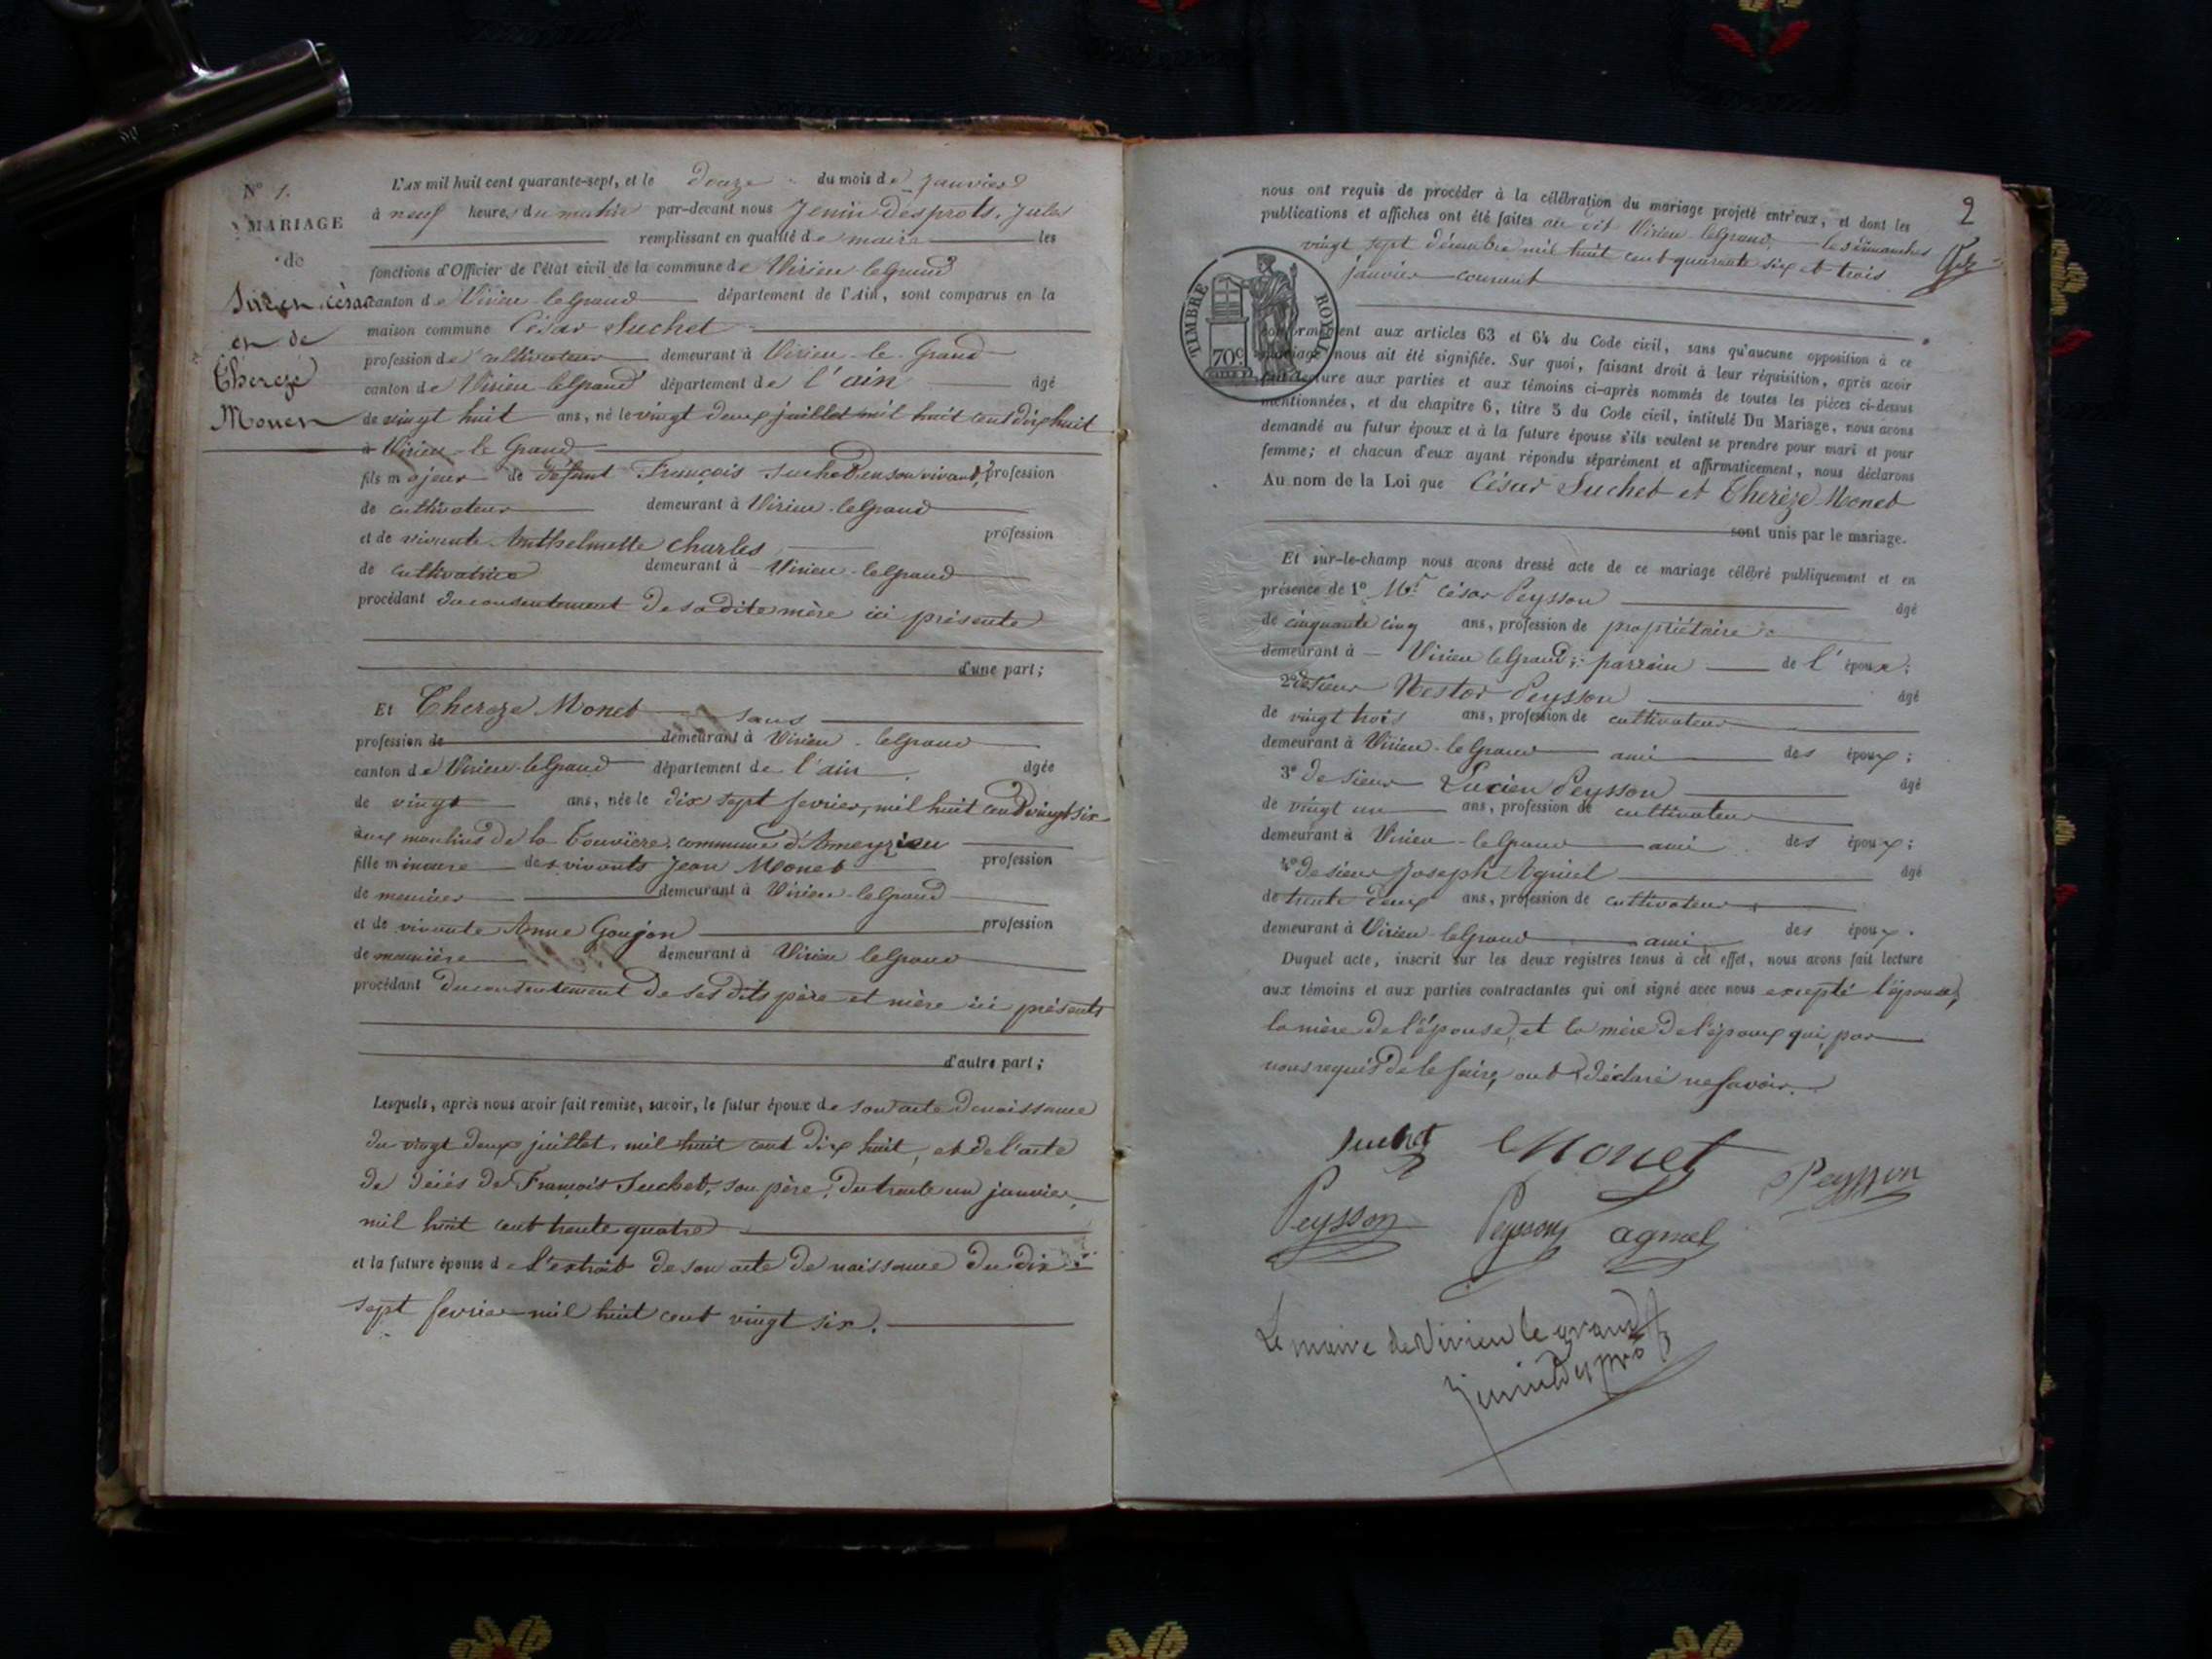 N° 1.
MARIAGE
de
Suchet César
et de
Thereze
Monet
L'AN mil huit cent quarante-sept, et le douze du mois de Janvier
à neuf heures du matin par-devant nous Jenin Desprots, Jules
remplissant en qualité de maire les
fonctions d'Officier de l'état civil de la commune de Virieu leGrand
canton de Virieu leGrand département de l'Ain, sont comparus en la
maison commune César Suchet
profession de cultivateur demeurant à Virieu-le-Grand
canton de Virieu leGrand département de l'ain âgé
de vingt huit ans, né le vingt deux juillet mil huit cent dix huit
à Virieu-le Grand
fils majeur de défunt François Suchet en son vivant, profession
de cultivateur demeurant à Virieu-leGrand
et de vivante Anthelmette Charles profession
de cultivatrice demeurant à Virieu-leGrand
procédant du consentement de sadite mère ici présente
d'une part;
Et Thereze Monet sans
profession de demeurant à Virieu-leGrand
canton de Virieu-leGrand département de l'ain âgée
de vingt ans, née le dix sept fevrier, mil huit cent vingt six
aux moulins de la Touvière, commune d'Ameyzieu
fille mineure des vivants Jean Monet profession
de meunier demeurant à Virieu-leGrand
et de vivante Anne Goujon profession
de meunière demeurant à Virieu leGrand
procédant du consentement de ses dits père et mère ici présents
d'autre part;
Lesquels, après nous avoir fait remise, savoir, le futur époux de son acte de naissance
du vingt deux juillet, mil huit cent dix huit, et de l'acte
de décès de François Suchet, son père, du trente un janvier
mil huit cent trente quatre
et la future épouse de l'extrait de son acte de naissance du dix
sept fevrier mil huit cent vingt six.
2
nous ont requis de procéder à la célébration du mariage projeté entr'eux, et dont les
publications et affiches ont été faites au dit Virieu-leGrand, les dimanches
vingt sept décembre mil huit cent quarante six et trois
janvier courant
TIMBRE ROYAL
70 c.
conformément aux articles 63 et 64 du Code civil, sans qu'aucune opposition à ce
mariage nous ait été signifiée. Sur quoi, faisant droit à leur réquisition, après avoir
fait lecture aux parties et aux témoins ci-après nommés de toutes les pièces ci-dessus
mentionnées, et du chapitre 6, titre 5 du Code civil, intitulé Du Mariage, nous avons
demandé au futur époux et à la future épouse s'ils veulent se prendre pour mari et pour
femme; et chacun d'eux ayant répondu séparément et affirmativement, nous déclarons
Au nom de la Loi que César Suchet et Thereze Monet
sont unis par le mariage.
Et sur-le-champ nous avons dressé acte de ce mariage célébré publiquement et en
présence de 1° Mr César Peysson âgé
de cinquante cinq ans, profession de propriétaire
demeurant à Virieu leGrand; parrain de l'époux;
2° de sieur Nestor Peysson âgé
de vingt trois ans, profession de cultivateur
demeurant à Virieu-leGrand ami des époux;
3° de sieur Lucien Peysson âgé
de vingt un ans, profession de cultivateur
demeurant à Virieu-leGrand ami des époux;
4° de sieur Joseph Agniel âgé
de trente deux ans, profession de cultivateur
demeurant à Virieu-leGrand ami des époux.
Duquel acte, inscrit sur les deux registres tenus à cet effet, nous avons fait lecture
aux témoins et aux parties contractantes qui ont signé avec nous excepté l'épouse,
la mère de l'épouse, et la mère de l'époux qui, par
nous requis de le faire, ont déclaré ne savoir.
Suchet Monet Peysson
Peysson Peysson agniel
Le maire de Virieu le grand